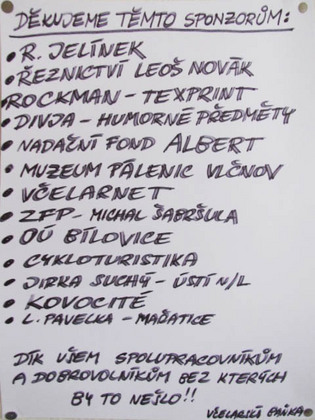 DĚKUJEME TĚMTO SPONZORŮM:
• R. JELÍNEK
• ŘEZNICTVÍ LEOŠ NOVÁK
ROCKMAN - TEXPRINT
• DIVJA - HUMORNÉ PŘEDMĚTY
• NADAČNÍ FOND ALBERT
• MUZEUM PÁLENIC VLČNOV
• VČELARNET
• ZFP - MICHAL ŠABRŠULA
• OÚ BÍLOVICE
• CYKLOTURISTIKA
• JIRKA SUCHÝ - ÚSTÍ N/L
• KOVOCITÉ
• L. PAVELKA - MAŘATICE
DÍK VŠEM SPOLUPRACOVNÍKŮM
A DOBROVOLNÍKŮM BEZ KTERÝCH
BY TO NEŠLO!!
VČELARSKÁ